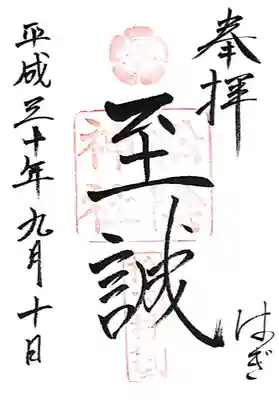 奉拝
はぎ
至誠
平成三十年九月十日